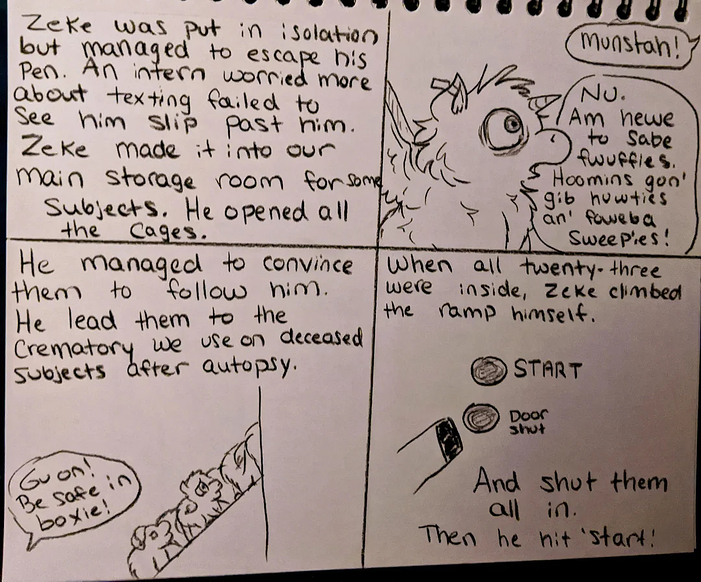 Zeke was put in isolation
but managed to escape his
Pen. An intern worried more
about texting failed to
See him slip past him.
Zeke made it into our
main storage room for some
Subjects. He opened all
the Cages.
munstah!
Nu.
Am hewe
to Sabe
fwuffies.
Hoomins gon'
gib huwties
an' foweba
Sweepies!
He managed to convince
them to follow him.
He lead them to the
Crematory we use on deceased
Subjects after autopsy.
Gu on!
Be safe in
boxie!
When all twenty-three
were inside, Zeke climbed
the ramp himself.
START
Door
shut
And shut them
all in.
Then he hit 'start!